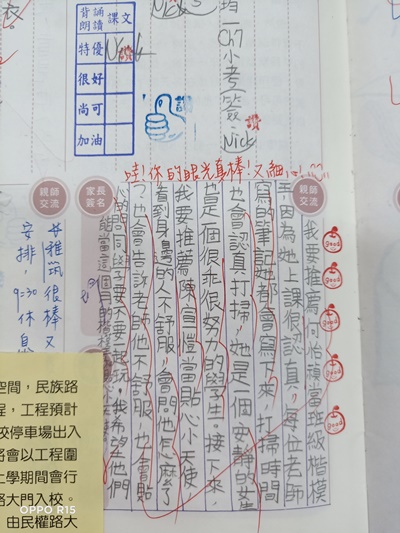 背誦
朗讀
課文
特優
很好
尚可
加油
Nick
讚
Ch7小考簽
讚
Nick
哇!你的眼光真棒!又細心!
親師
交流
家長
簽名
親師
交流
good
good
good
good
good
我要推薦何怡頻當班級楷模
手,因為她上課很認真,每位老師
寫的筆記她都會寫下來,打掃時間
也會認真打掃,她是一個安靜的女生
也是個很乖很努力的學生。接下來,
我要推薦陳宣愷當貼心小天使,
看到身邊的人不舒服,會問他怎麼了
?也會告訴老師他不舒服,也會貼
心的問同學要不要一起玩,我希望他們
能當這個月的楷模
很棒又
安排,
9:30休息
空間,民族路
程,工程預計
校停車場出入
將會以工程圍
上學期間會行
路大門入校。
由民權路大
OPPO R15